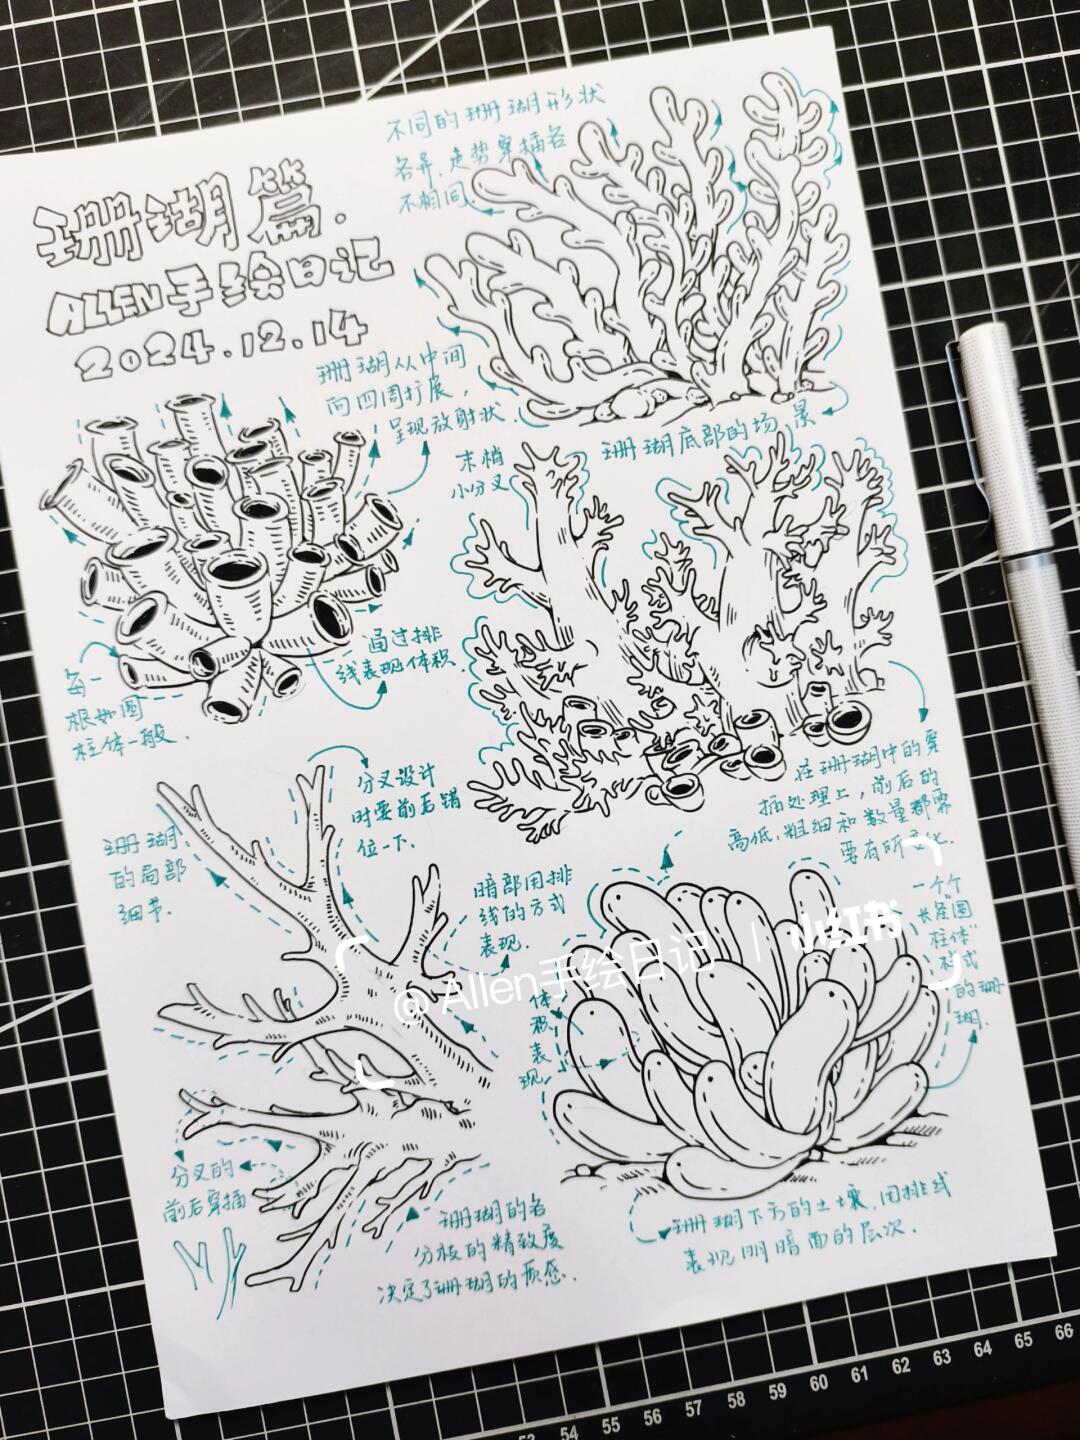 珊瑚篇.
ALLEN手绘日记
2024.12.14
不同的珊瑚形状
各异,走势穿插各
不相同.
珊瑚从中间
向四周扩展,
呈现放射状.
珊瑚底部的场景
末梢
小分叉
通过排
线表现体积
每一
根如圆
柱体一般.
在珊瑚中的穿
插处理上,前后的
高低.粗细和数量都需
要有所变化.
分叉设计
时要前后错
位一下.
珊瑚
的局部
细节.
暗部用排
线的方式
表现.
一个个
"长条圆
柱体"
样式
的珊
瑚.
体
积
表
现
@Allen手绘日记 | 小红书
分叉的
前后穿插
珊瑚的各
分枝的精致度
决定了珊瑚的质感.
珊瑚下方的土壤,用排线
表现明暗面的层次.
53 54 55 56 57 58 59 60 61 62 63 64 65 66